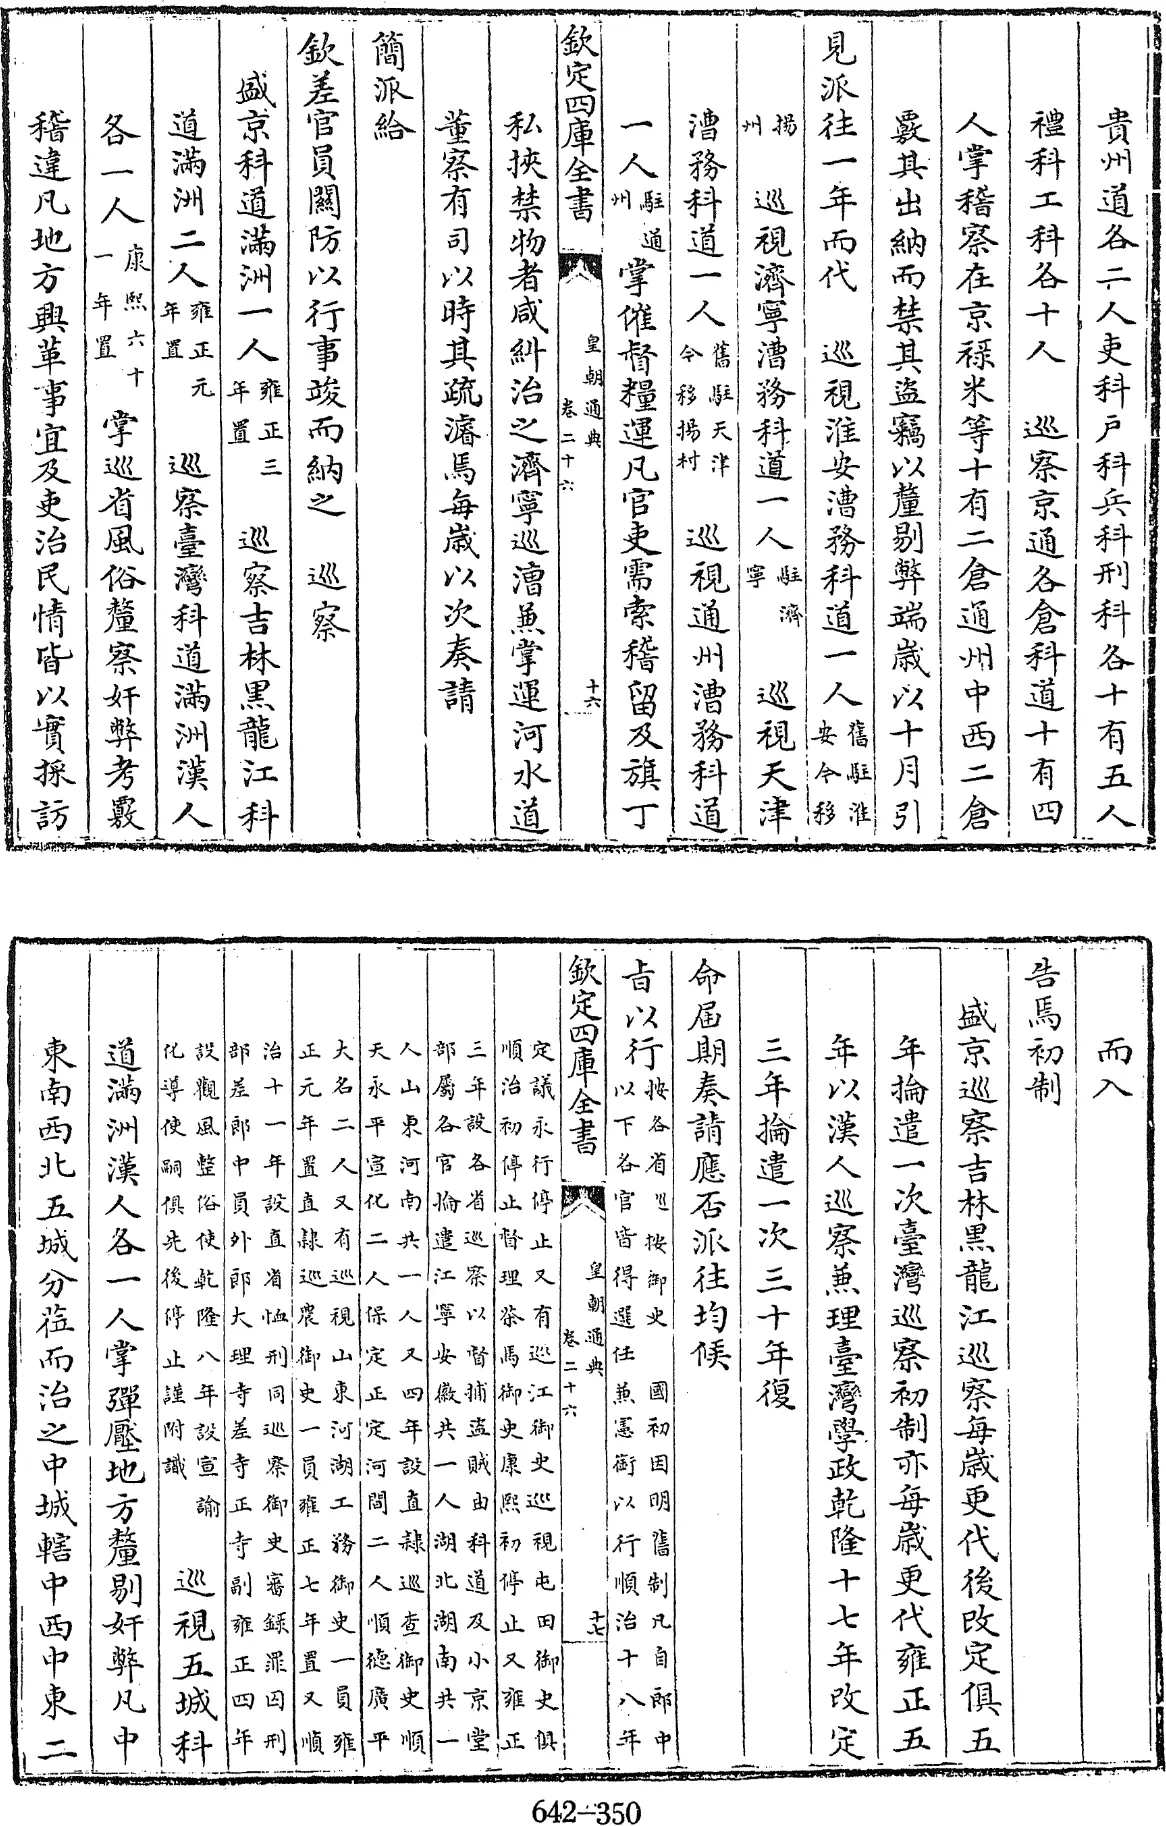 貴州道各二人吏科户科兵科刑科各十有五人
禮科工科各十人　巡察京通各倉科道十有四
人掌稽察在京禄米等十有二倉通州中西二倉
覈其出納而禁其盜竊以釐剔弊端歳以十月引
見派往一年而代　巡視淮安漕務科道一人舊駐淮安今移
揚州　巡視濟寧漕務科道一人駐濟寧　巡視天津
漕務科道一人舊駐天津今移揚村　巡視通州漕務科道
一人駐通州掌催督糧運凡官吏需索稽留及旗丁
欽定四庫全書　皇朝通典卷二十六　十六
私挾禁物者咸糾治之濟寧巡漕兼掌運河水道
董察有司以時其疏濬焉每歳以次奏請
簡派給
欽差官員關防以行事竣而納之　巡察
盛京科道滿洲一人雍正三年置　巡察吉林黑龍江科
道滿洲二人雍正元年置　巡察臺灣科道滿洲漢人
各一人康熙六十一年置　掌巡省風俗釐察奸弊考覈
稽違凡地方興革事宜及吏治民情皆以實採訪
而入
告焉初制
盛京巡察吉林黑龍江巡察每歳更代後改定俱五
年掄遣一次臺灣巡察初制亦每歳更代雍正五
年以漢人巡察兼理臺灣學政乾隆十七年改定
三年掄遣一次三十年復
命屆期奏請應否派往均候
旨以行按各省巡按御史　國初因明舊制凡自郎中以下各官皆得選任兼憲銜以行順治十八年
欽定四庫全書　皇朝通典卷二十六　十七
定議永行停止又有巡江御史巡視屯田御史俱順治初停止督理茶馬御史康熙初停止又雍正
三年設各省巡察以督捕盗賊由科道及小京堂部屬各官掄遣江寧安徽共一人湖北湖南共一
人山東河南共一人又四年設直隷巡查御史順天永平宣化二人保定正定河間二人順德廣平
大名二人又有巡視山東河湖工務御史一員雍正元年置直隷巡農御史一員雍正七年置又順
治十一年設直省恤刑同巡察御史審録罪囚刑部差郎中員外郎大理寺差寺正寺副雍正四年
設觀風整俗使乾隆八年設宣諭化導使嗣俱先後停止謹附識　巡視五城科
道滿洲漢人各一人掌彈壓地方釐剔奸弊凡中
東南西北五城分蒞而治之中城轄中西中東二
642-350